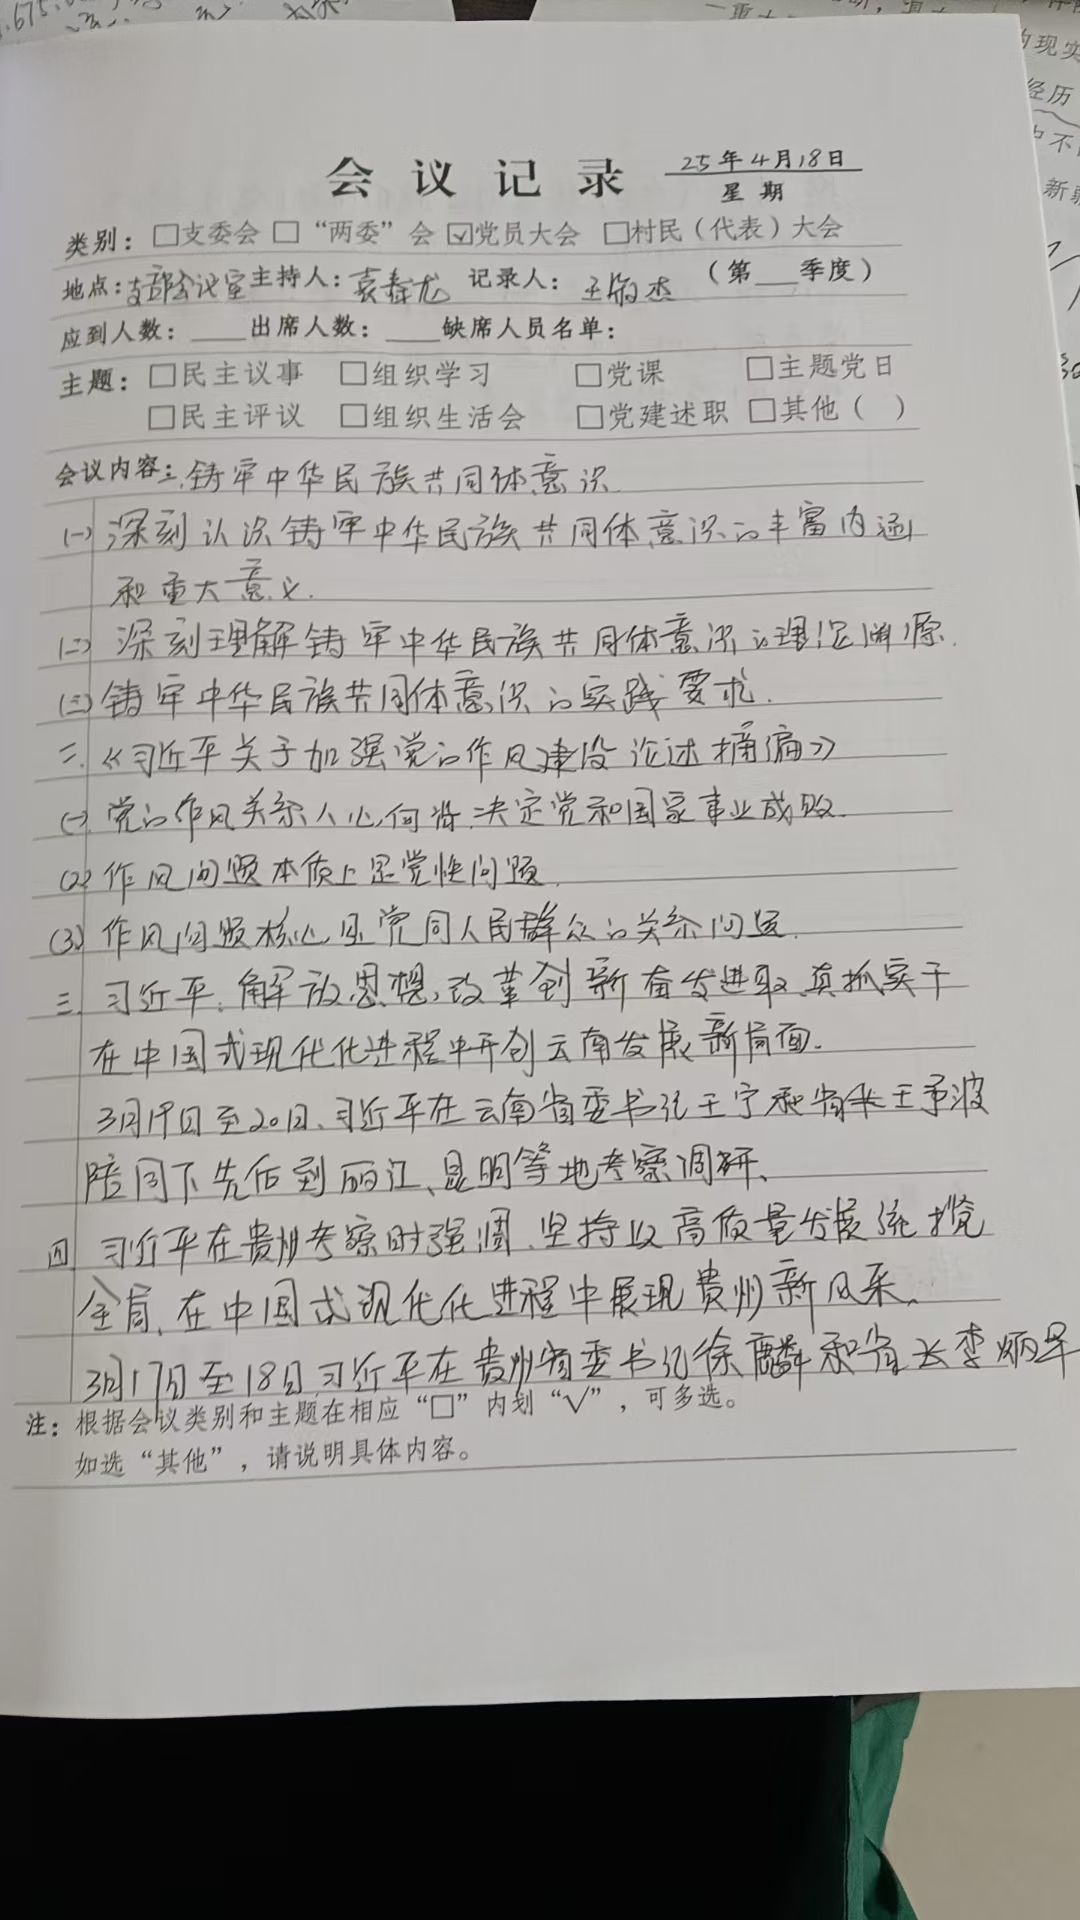 会议记录 25年4月18日
星期
类别：□支委会 □“两委”会 ☑党员大会 □村民（代表）大会
地点：支部会议室 主持人：袁春龙 记录人：王敏杰 （第__季度）
应到人数：____出席人数：____缺席人员名单：
主题：□民主议事 □组织学习 □党课 □主题党日
□民主评议 □组织生活会 □党建述职 □其他（ ）
会议内容：一.铸牢中华民族共同体意识
(一)深刻认识铸牢中华民族共同体意识的丰富内涵
和重大意义.
(二)深刻理解铸牢中华民族共同体意识的理论渊源.
(三)铸牢中华民族共同体意识的实践要求.
二.《习近平关于加强党的作风建设论述摘编》
(一).党的作风关系人心向背.决定党和国家事业成败.
(2)作风问题本质上是党性问题.
(3)作风问题核心是党同人民群众的关系问题.
三.习近平:解放思想,改革创新奋发进取、真抓实干
在中国式现代化进程中开创云南发展新局面.
3月19日至20日、习近平在云南省委书记王宁和省长王予波
陪同下先后到丽江、昆明等地考察调研、
四.习近平在贵州考察时强调、坚持以高质量发展统揽
全局、在中国式现代化进程中展现贵州新风采、
3月17日至18日.习近平在贵州省委书记徐麟和省长李炳军
注：根据会议类别和主题在相应“□”内划“√”，可多选。
如选“其他”，请说明具体内容。